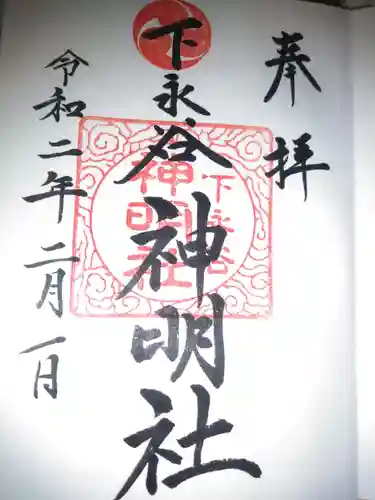 奉拝
下永谷神明社
下永谷
神明社
令和二年二月一日